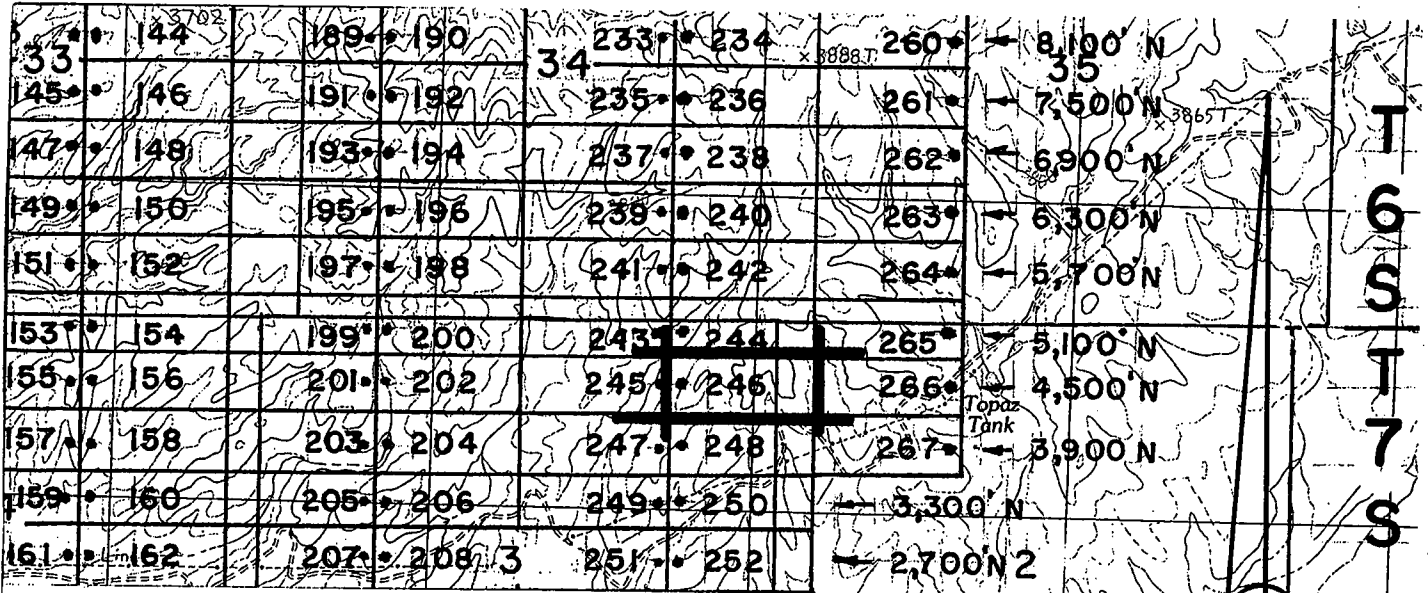 × 3702
144 189 190 233 234 260 ← 8,100' N
33 34 × 3888T 35
145 146 191 192 235 236 261 ← 7,500' N
× 3865T
T
147 148 193 194 237 238 262 ← 6,900' N
6
149 150 195 196 239 240 263 ← 6,300' N
151 152 197 198 241 242 264 ← 5,700' N
S
153 154 199 200 243 244 265 ← 5,100' N
T
155 156 201 202 245 246 266 ← 4,500' N
Topaz
Tank
157 158 203 204 247 248 267 ← 3,900 N
7
159 160 205 206 249 250 ← 3,300' N
S
161 162 207 208 3 251 252 ← 2,700' N 2